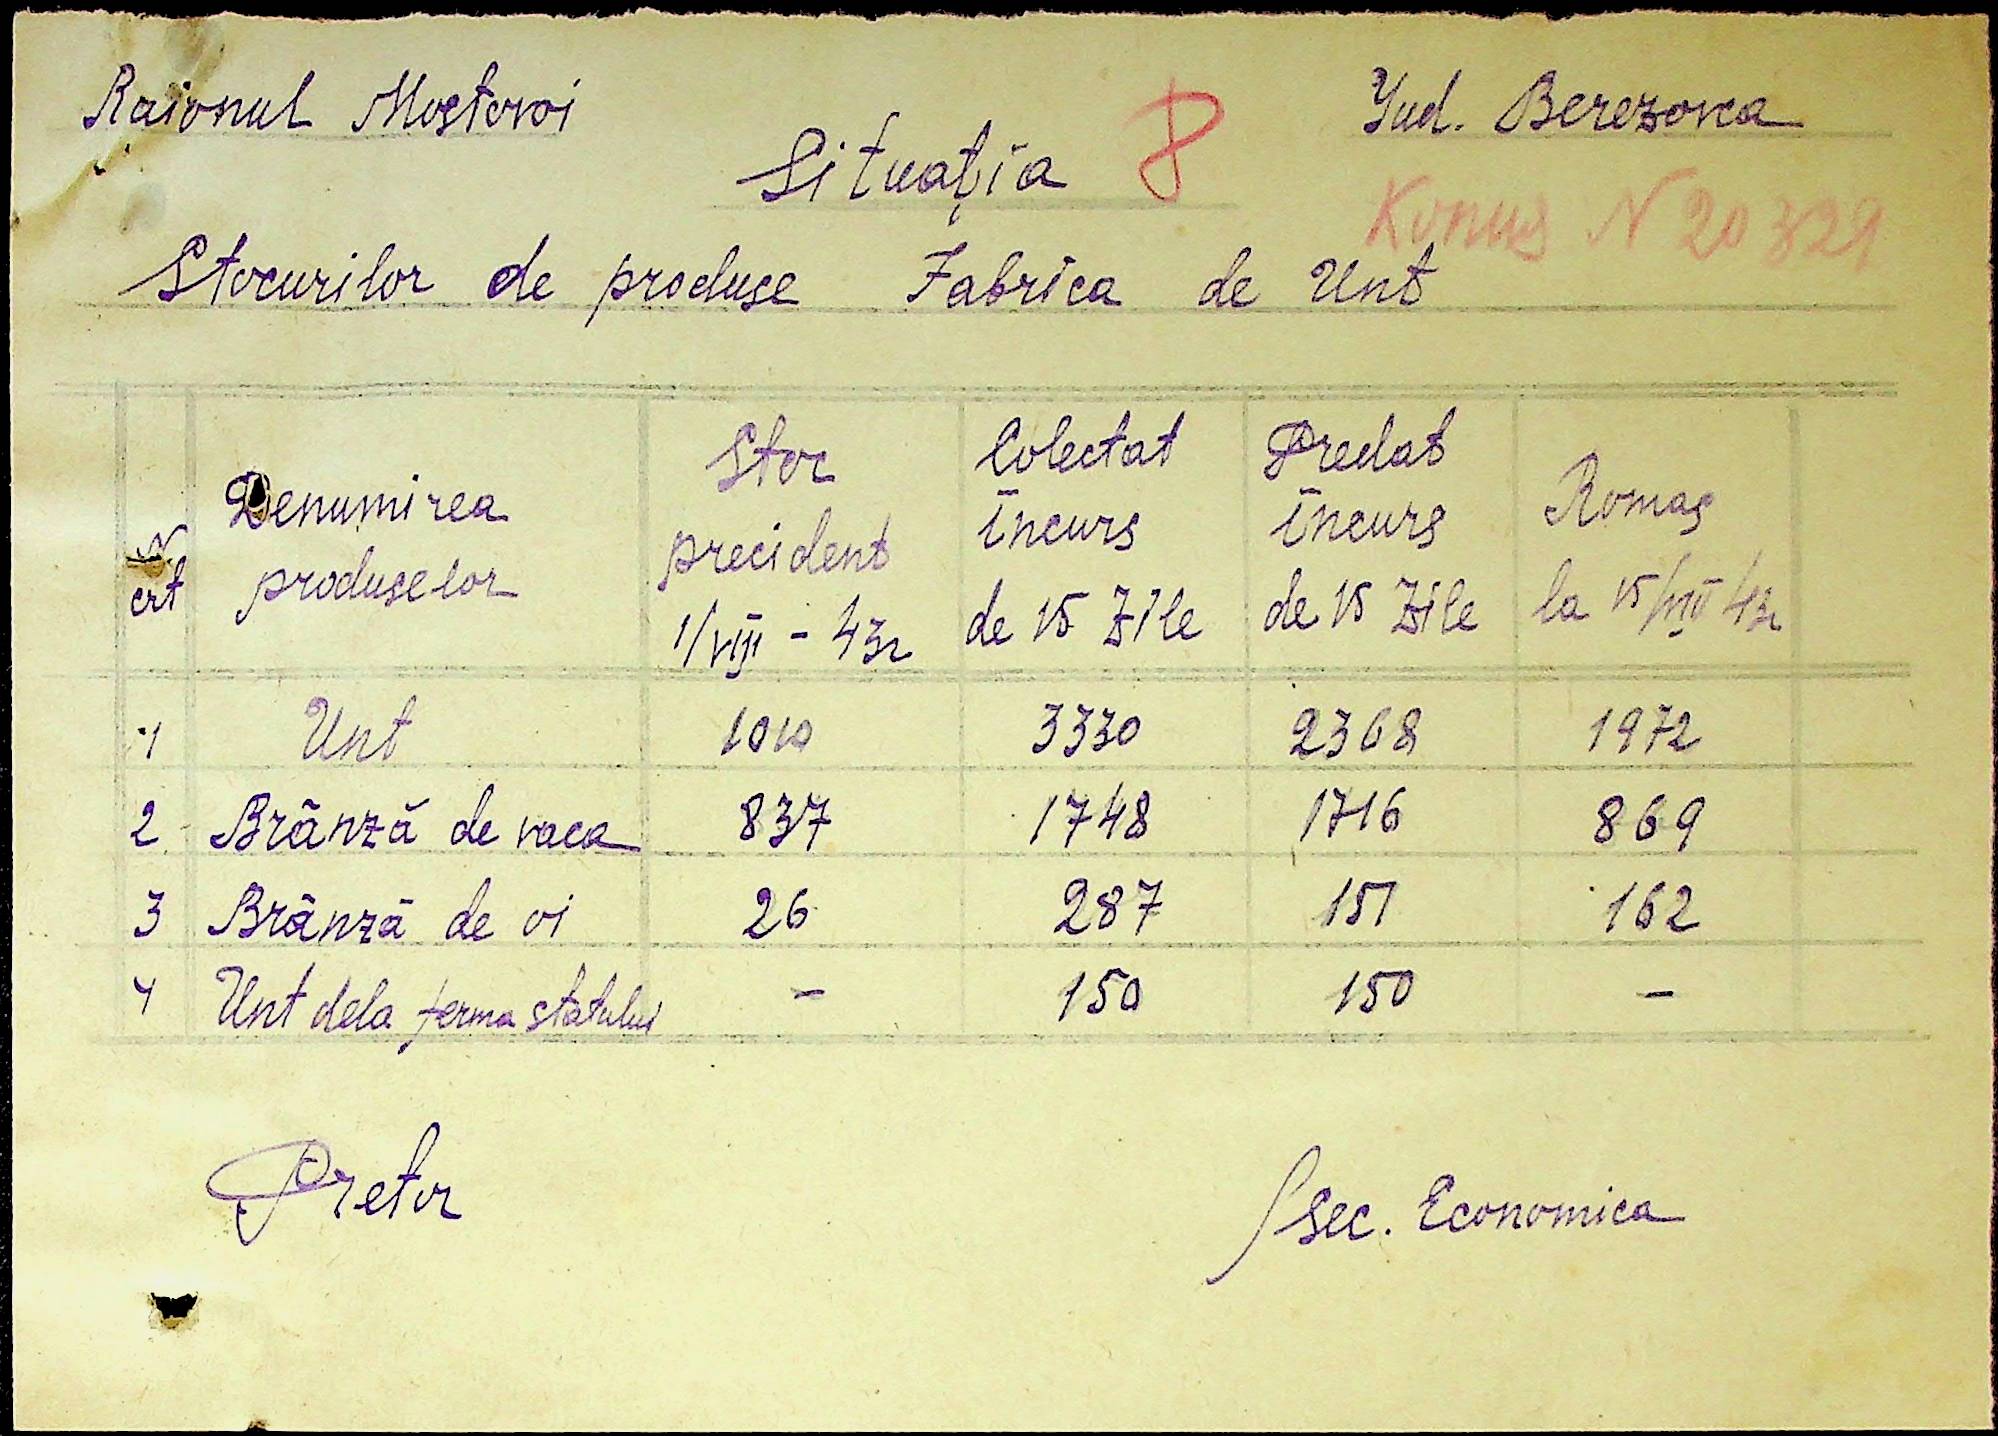 Raionul Mostovoi
Jud. Berezovca
Situaţia 8
Konus N 20329
Stocurilor de produse Fabrica de Unt
N crt
Denumirea produselor
Stoc precident 1/VIII - 43r
Colectat încurs de 15 Zile
Predat încurs de 15 Zile
Romas la 15/VIII 43r
1 Unt 1010 3330 2368 1972
2 Brânză de vaca 837 1748 1716 869
3 Brânză de oi 26 287 151 162
4 Unt dela ferma statului - 150 150 -
Pretor
Sec. Economica